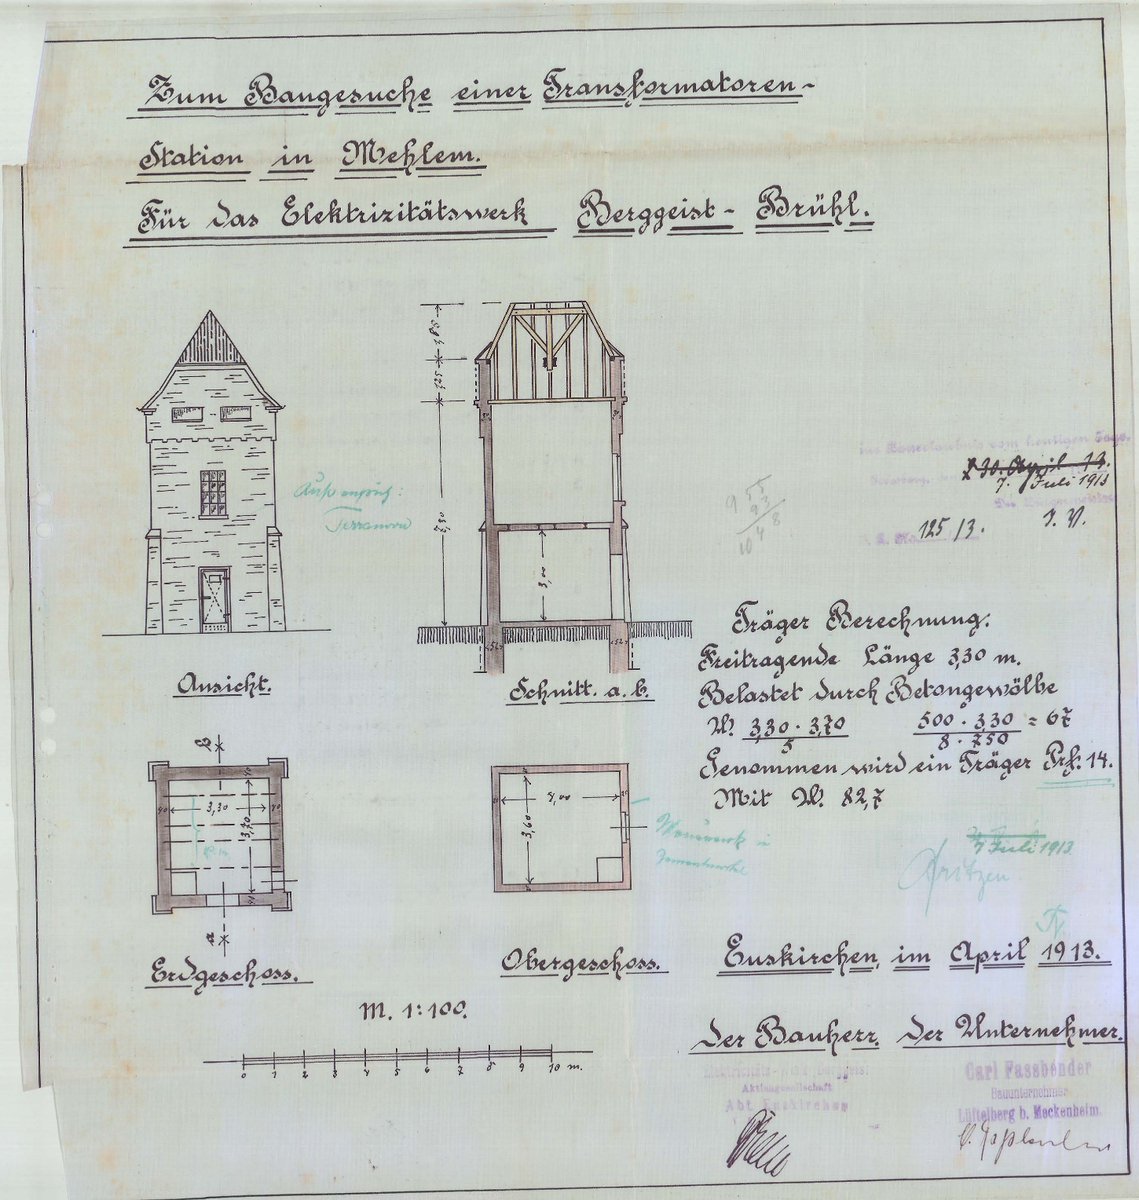 Zum Baugesuche einer Transformatoren-
Station in Mehlem.
Für das Elektrizitätswerk Berggeist-Brühl.
1,85
1,25
7,30
3,00
52
52
Außenputz:
Terranova
9
55
93
8
10
4
vom heutigen Tage.
30. April 13.
7. Juli 1913
125/3.
I. V.
Ansicht.
Schnitt. a. b.
Träger Berechnung.
Freitragende Länge 3,30 m.
Belastet durch Betongewölbe
W. 3,30 · 3,70 / 5 500 · 3,30 / 8 · 750 = 67
Genommen wird ein Träger Prf. 14.
Mit W. 82,7
b
40
3,30
40
3,70
a
4,00
3,60
Mauerwerk in
7 Juli 1913
Fritzen
Erdgeschoss.
Obergeschoss.
Euskirchen, im April 1913.
M. 1:100.
0 1 2 3 4 5 6 7 8 9 10 m.
Der Bauherr. Der Unternehmer.
Aktiengesellschaft
Abt. Euskirchen
Carl Fassbender
Bauunternehmer
Lüftelberg b. Meckenheim.